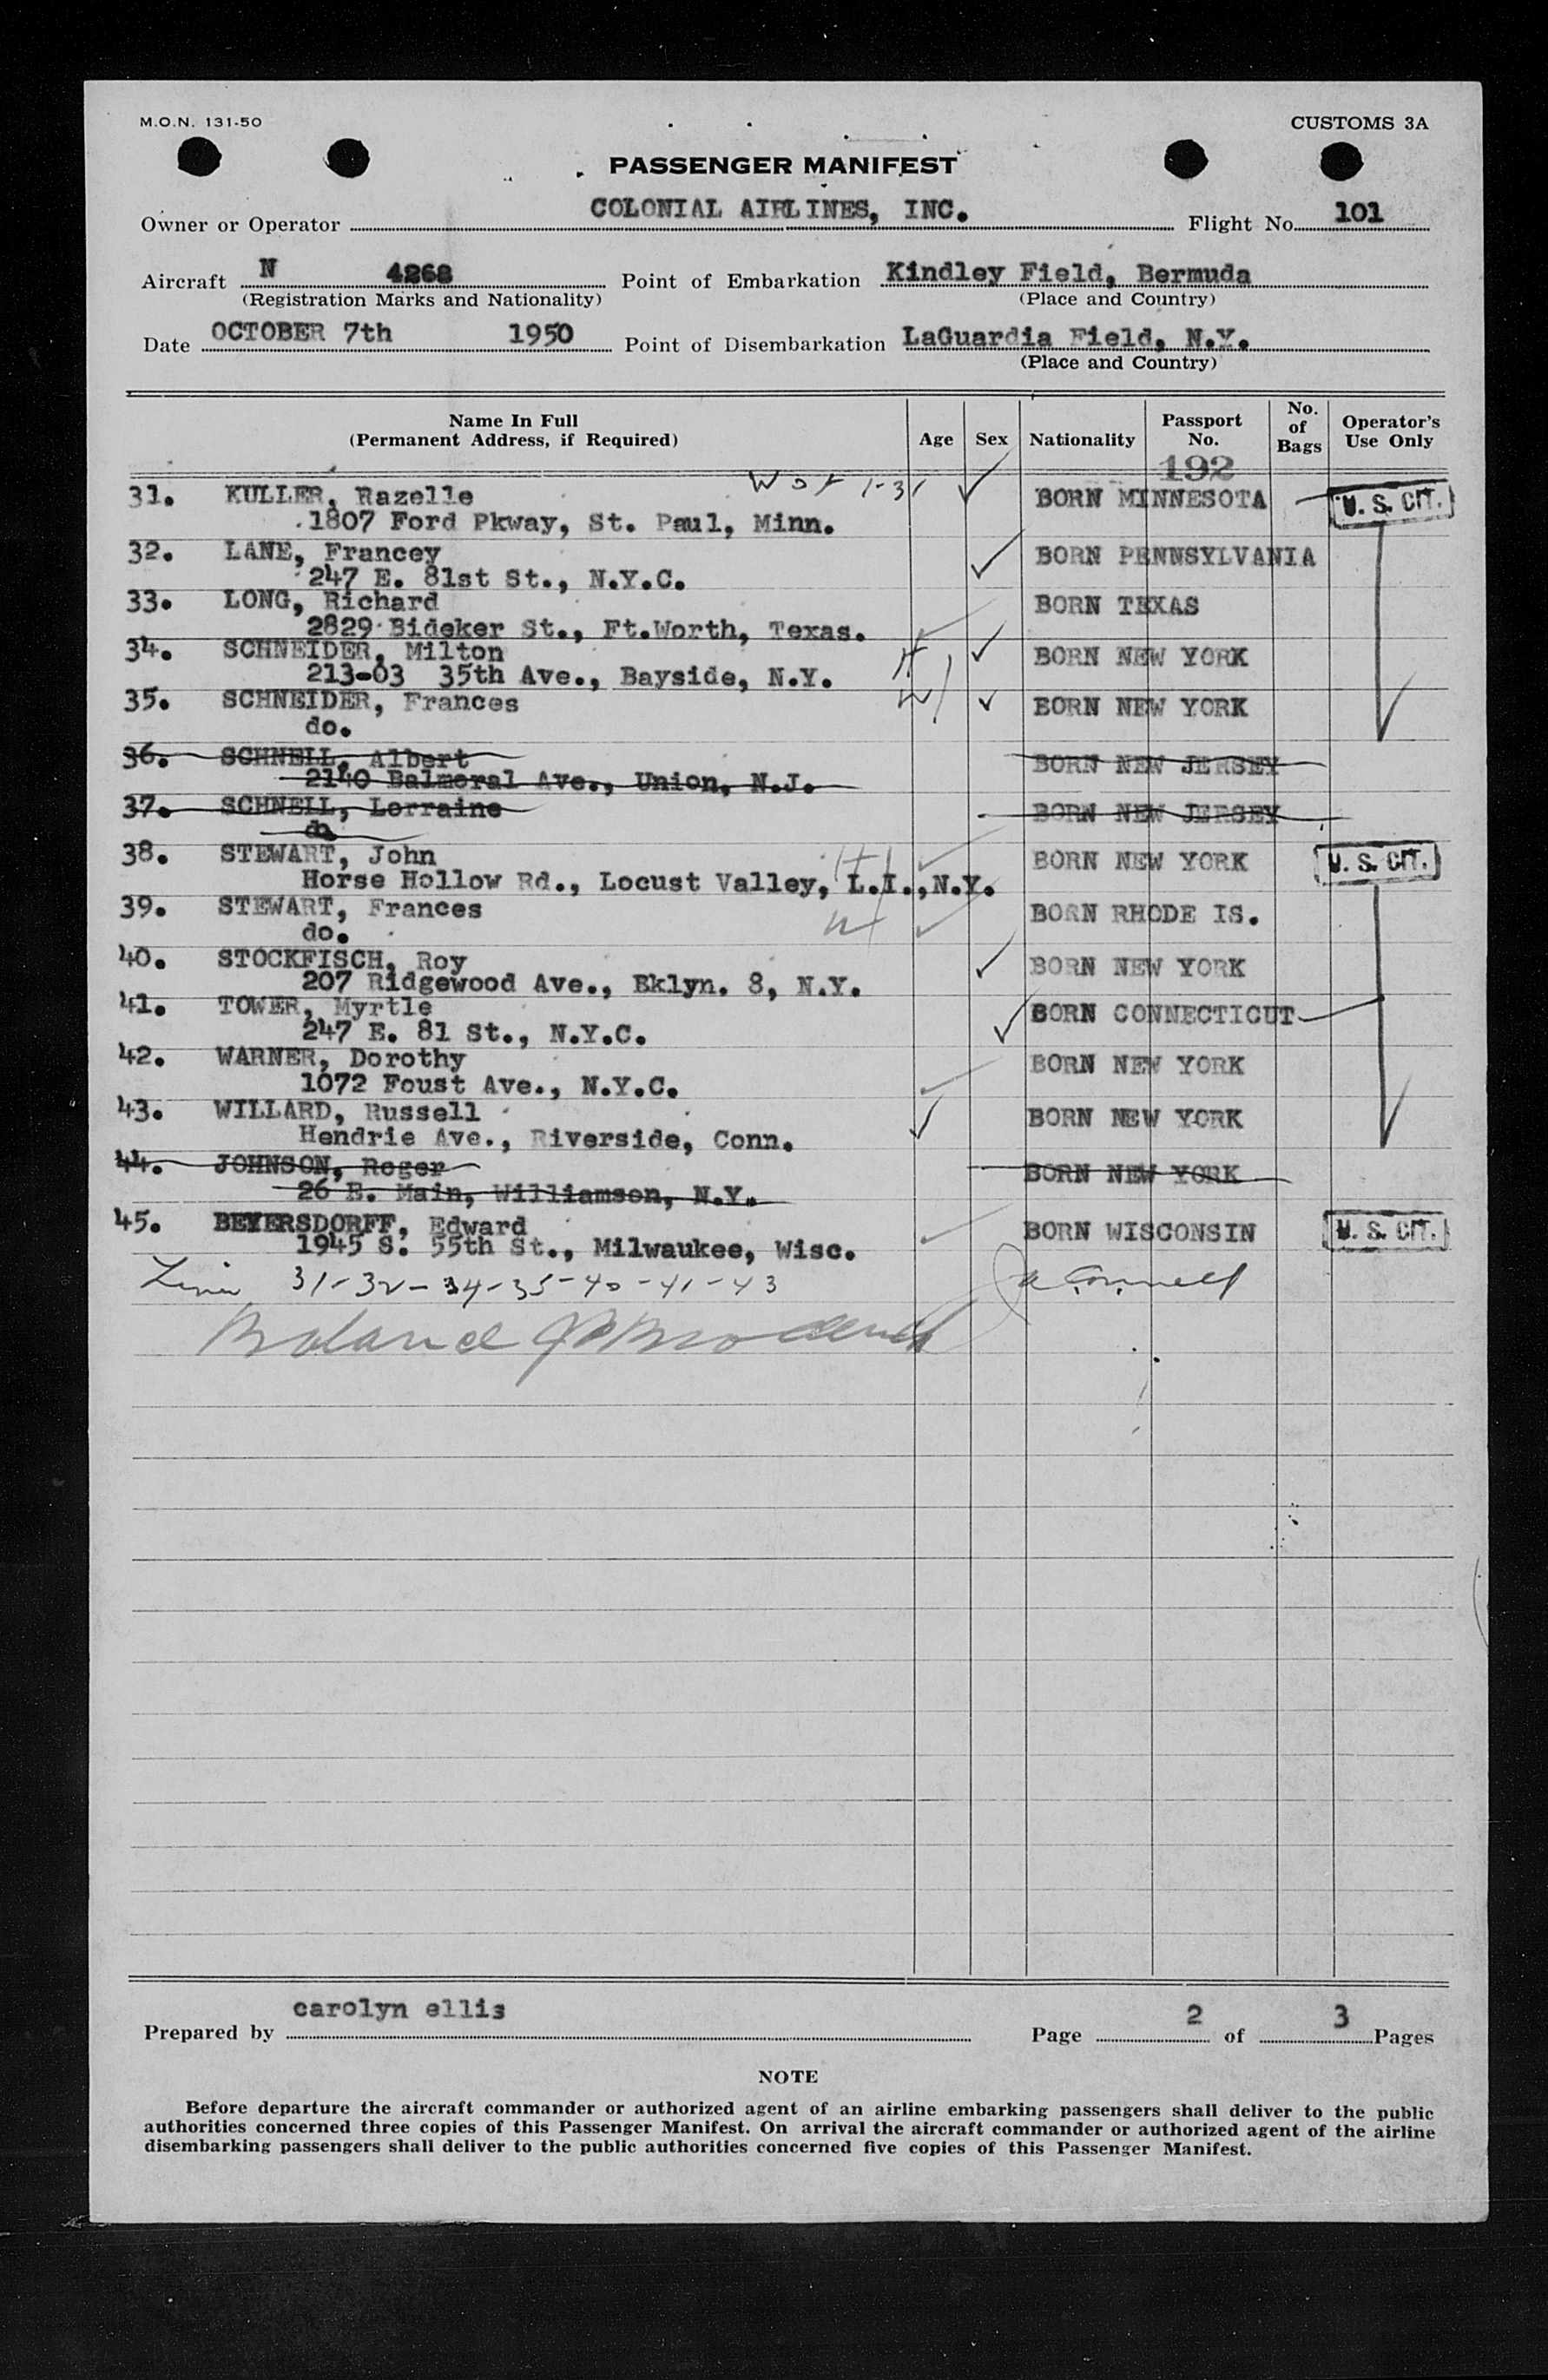 M.O.N. 131-50
CUSTOMS 3A
PASSENGER MANIFEST
Owner or Operator COLONIAL AIRLINES, INC. Flight No. 101
Aircraft N 4268 Point of Embarkation Kindley Field, Bermuda
(Registration Marks and Nationality) (Place and Country)
Date OCTOBER 7th 1950 Point of Disembarkation LaGuardia Field, N.Y.
(Place and Country)
Name In Full (Permanent Address, if Required) Age Sex Nationality Passport No. No. of Bags Operator's Use Only
192
31. KULLER, Razelle W of 1-31 BORN MINNESOTA U. S. CIT.
1807 Ford Pkway, St. Paul, Minn.
32. LANE, Francey BORN PENNSYLVANIA
247 E. 81st St., N.Y.C.
33. LONG, Richard BORN TEXAS
2829 Bideker St., Ft.Worth, Texas.
34. SCHNEIDER, Milton H BORN NEW YORK
213-03 35th Ave., Bayside, N.Y.
35. SCHNEIDER, Frances W BORN NEW YORK
do.
36. SCHNELL, Albert BORN NEW JERSEY
2140 Balmoral Ave., Union, N.J.
37. SCHNELL, Lorraine BORN NEW JERSEY
do
38. STEWART, John H BORN NEW YORK U. S. CIT.
Horse Hollow Rd., Locust Valley, L.I.,N.Y.
39. STEWART, Frances W BORN RHODE IS.
do.
40. STOCKFISCH, Roy BORN NEW YORK
207 Ridgewood Ave., Bklyn. 8, N.Y.
41. TOWER, Myrtle BORN CONNECTICUT
247 E. 81 St., N.Y.C.
42. WARNER, Dorothy BORN NEW YORK
1072 Foust Ave., N.Y.C.
43. WILLARD, Russell BORN NEW YORK
Hendrie Ave., Riverside, Conn.
44. JOHNSON, Roger BORN NEW YORK
26 E. Main, Williamson, N.Y.
45. BEYERSDORFF, Edward BORN WISCONSIN U. S. CIT.
1945 S. 55th St., Milwaukee, Wisc.
31-32-34-35-40-41-43
carolyn ellis
Prepared by Page 2 of 3 Pages
NOTE
Before departure the aircraft commander or authorized agent of an airline embarking passengers shall deliver to the public
authorities concerned three copies of this Passenger Manifest. On arrival the aircraft commander or authorized agent of the airline
disembarking passengers shall deliver to the public authorities concerned five copies of this Passenger Manifest.